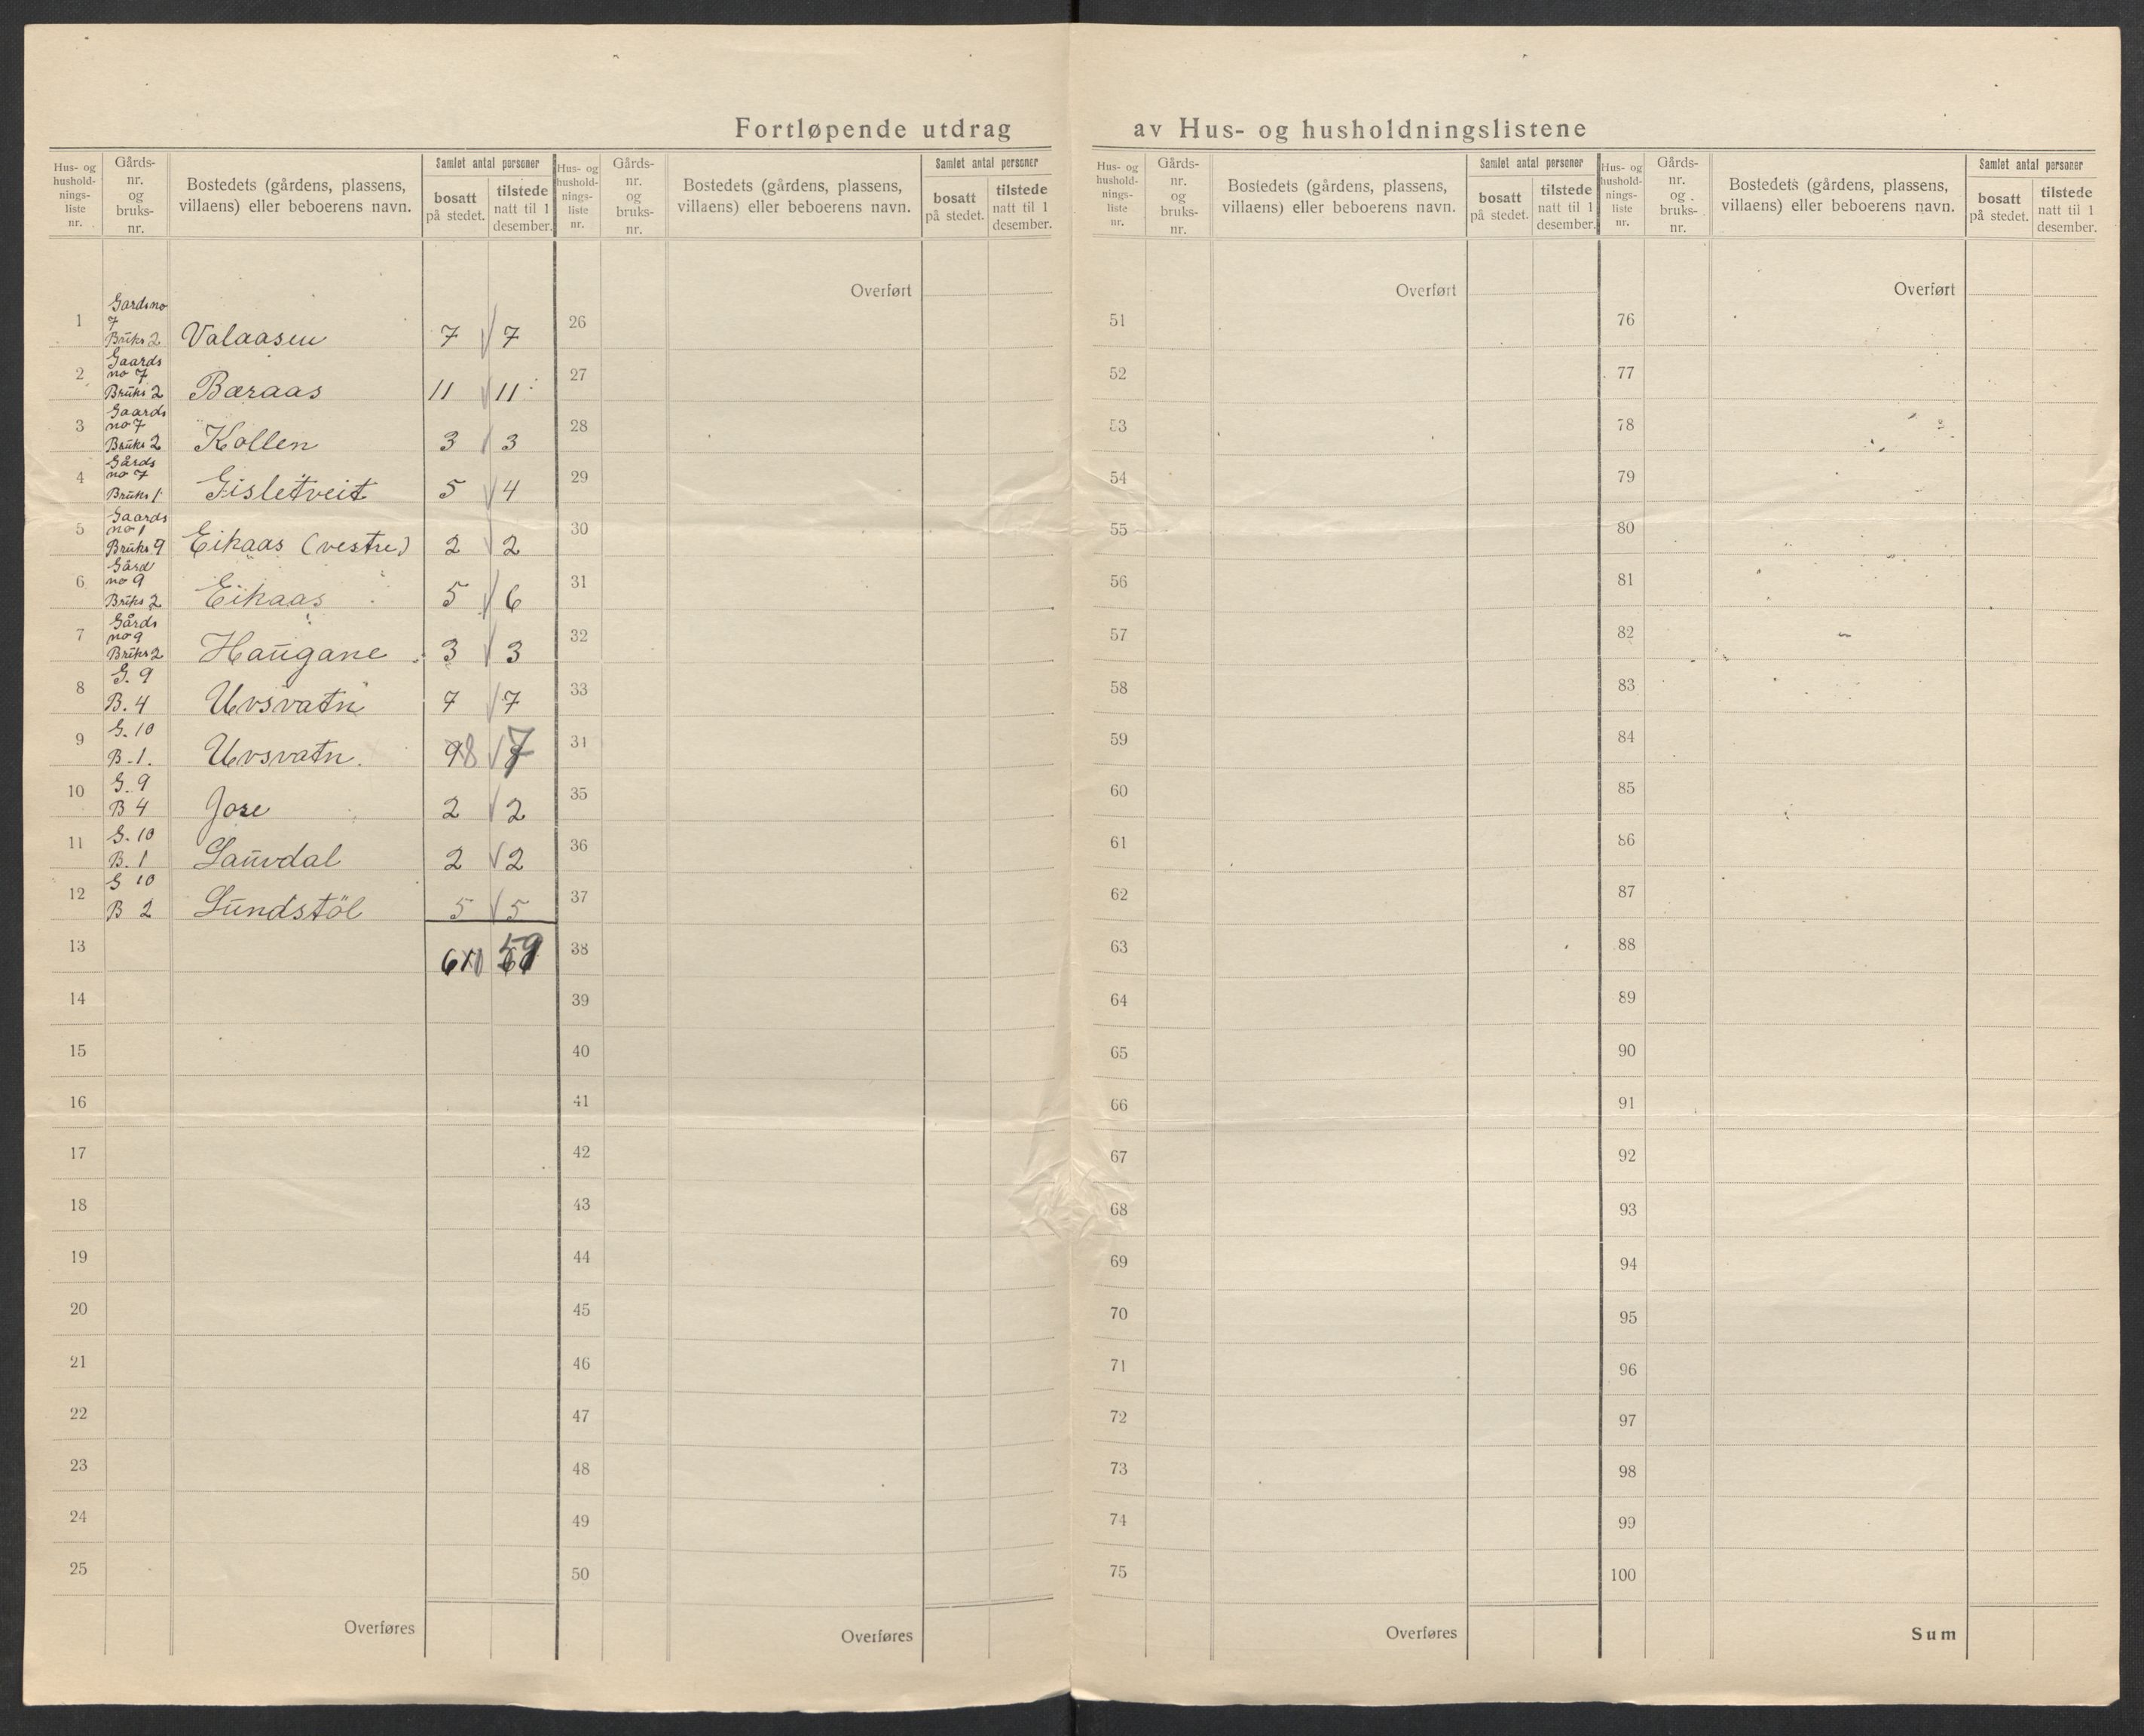 Fortløpende utdrag av Hus- og husholdningslistene
Hus- og hushold-nings-liste nr. Gårds-nr. og bruks-nr. Bostedets (gårdens, plassens, villaens) eller beboerens navn. Samlet antal personer bosatt på stedet. tilstede natt til 1 desember.
Hus- og hushold-nings-liste nr. Gårds-nr. og bruks-nr. Bostedets (gårdens, plassens, villaens) eller beboerens navn. Samlet antal personer bosatt på stedet. tilstede natt til 1 desember.
Hus- og hushold-nings-liste nr. Gårds-nr. og bruks-nr. Bostedets (gårdens, plassens, villaens) eller beboerens navn. Samlet antal personer bosatt på stedet. tilstede natt til 1 desember.
Hus- og hushold-nings-liste nr. Gårds-nr. og bruks-nr. Bostedets (gårdens, plassens, villaens) eller beboerens navn. Samlet antal personer bosatt på stedet. tilstede natt til 1 desember.
1 Gardsno 7 Bruks 2 Valaasen 7 7
2 Gaards no 7 Bruks 2 Baraas 11 11
3 Gaards no 7 Bruks 2 Kollen 3 3
4 Gårds no 7 Bruks 1 Gisletveit 5 4
5 Gaards no 1 Bruks 9 Eikaas (vestre) 2 2
6 Gård no 9 Bruks 2 Eikaas 5 6
7 Gårds no 9 Bruks 2 Haugane 3 3
8 G. 9 B. 4 Uvsvatn 7 7
9 G. 10 B. 1. Uvsvatn. 8 7
10 G. 9 B 4 Jore 2 2
11 G. 10 B. 1 Lauvdal 2 2
12 G 10 B 2 Sundstöl 5 5
13 59
14
15
16
17
18
19
20
21
22
23
24
25
Overføres
Overført
26
27
28
29
30
31
32
33
31
35
36
37
38
39
40
41
42
43
44
45
46
47
48
49
50
Overføres
Overført
51
52
53
54
55
56
57
58
59
60
61
62
63
64
65
66
67
68
69
70
71
72
73
74
75
Overføres
Overført
76
77
78
79
80
81
82
83
84
85
86
87
88
89
90
91
92
93
94
95
96
97
98
99
100
Sum